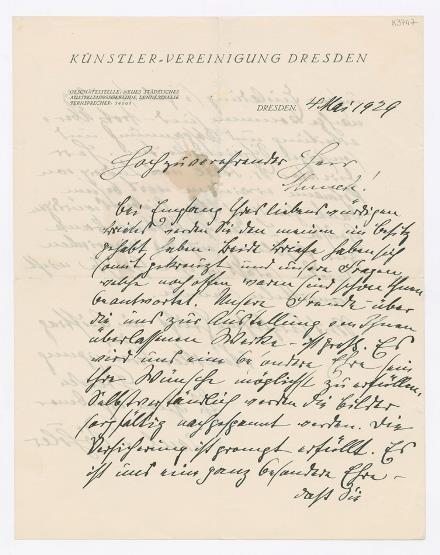 K3747
KÜNSTLER-VEREINIGUNG DRESDEN
GESCHÄFTSSTELLE: NEUES STÄDTISCHES
AUSSTELLUNGSGEBÄUDE, LENNÉSTRASSE
FERNSPRECHER:
DRESDEN, 4 Mai 1929
Hochzuverehrender Herr
Munch!
Bei Empfang Ihres liebenswürdigen
Briefes werden Sie den meinen im Besitz
gehabt haben. Beide Briefe haben sich
somit gekreuzt und unsere Fragen,
welche noch offen waren sind schon Ihnen
beantwortet. Unsere Freude über
die uns zur Ausstellung von Ihnen
überlassenen Werke – ist groß. Es
wird uns eine besondere Ehre sein
Ihre Wünsche möglichst zu erfüllen.
Selbstverständlich werden die Bilder
sorgfältig nachgespannt werden. Die
Versicherung ist prompt erfüllt. Es
ist uns eine ganz besondere Ehre –
daß Sie